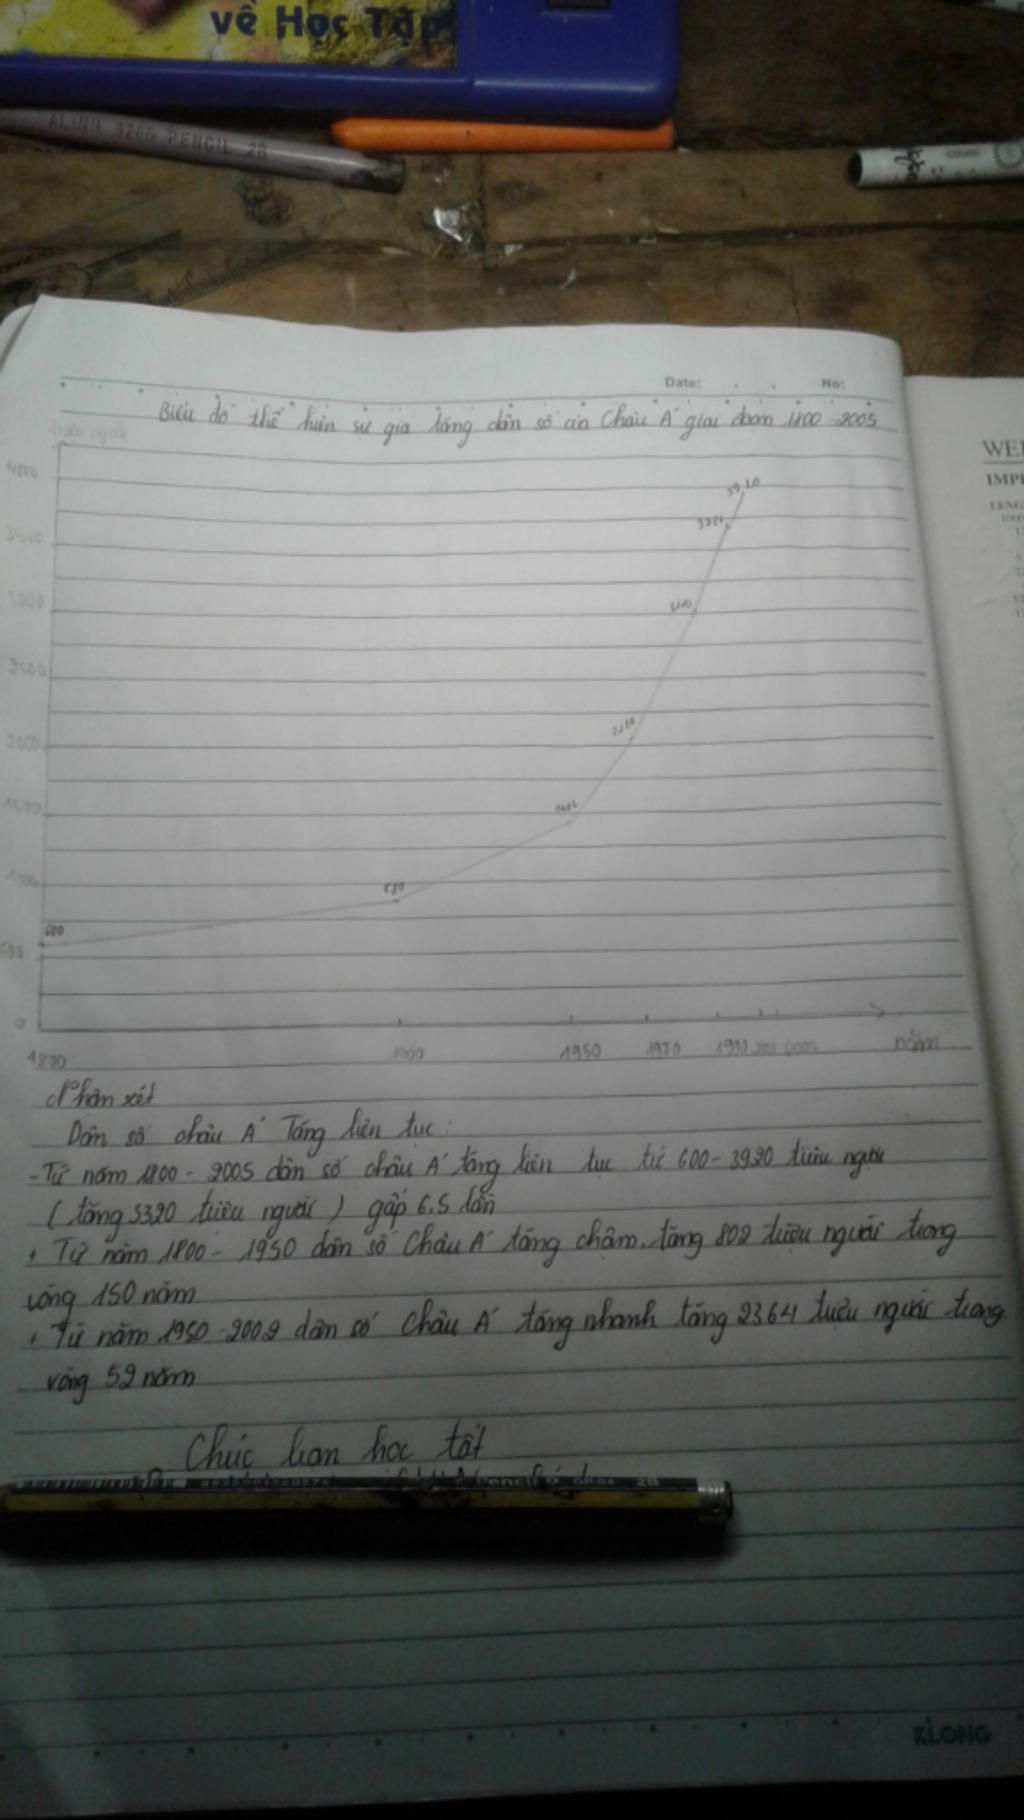 về Học Tập
ALINA 9266 PENCIL 2B
Date: No:
Biểu đồ thể hiện sự gia tăng dân số của Châu Á giai đoạn 1800-2005
triệu người
4000
3500
3000
2500
2000
1500
1000
500
0
3920
600
1800 1900 1950 1970 1990 2002 2005 năm
Nhận xét
Dân số châu Á Tăng liên tục:
-Từ năm 1800 - 2005 dân số châu Á tăng liên tục từ 600-3920 triệu người
(tăng 3320 triệu người) gấp 6,5 lần
+ Từ năm 1800 - 1950 dân số Châu Á tăng chậm, tăng 802 triệu người trong
vòng 150 năm
+ Từ năm 1950-2002 dân số Châu Á tăng nhanh tăng 2364 triệu người trong
vòng 52 năm
Chúc bạn học tốt
2B
KLONG
WEI
IMP
LENG